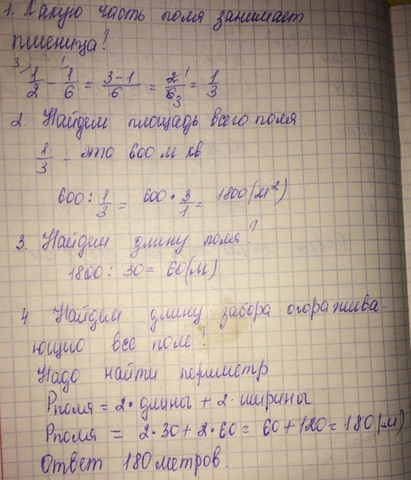 1. Какую часть поля занимает
пшеница?
1/2 - 1/6 = 3-1/6 = 2/6 = 1/3
2. Найдем площадь всего поля
1/3 - это 600 м кв
600 : 1/3 = 600 • 3/1 = 1800 (м²)
3. Найдем длину поля?
1800 : 30 = 60 (м)
4 Найдем длину забора огоражива-
ющию все поле?
Надо найти периметр
Pполя = 2 • длины + 2 • ширины
Pполя = 2•30 + 2•60 = 60 + 120 = 180 (м)
Ответ 180 метров.